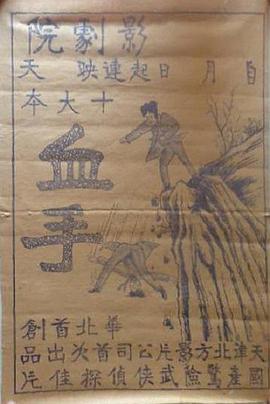 影劇院
自 月 日起連映 天
十大本
血手
華北首創
天津北方影片公司首次出品
國產驚險武俠偵探佳片